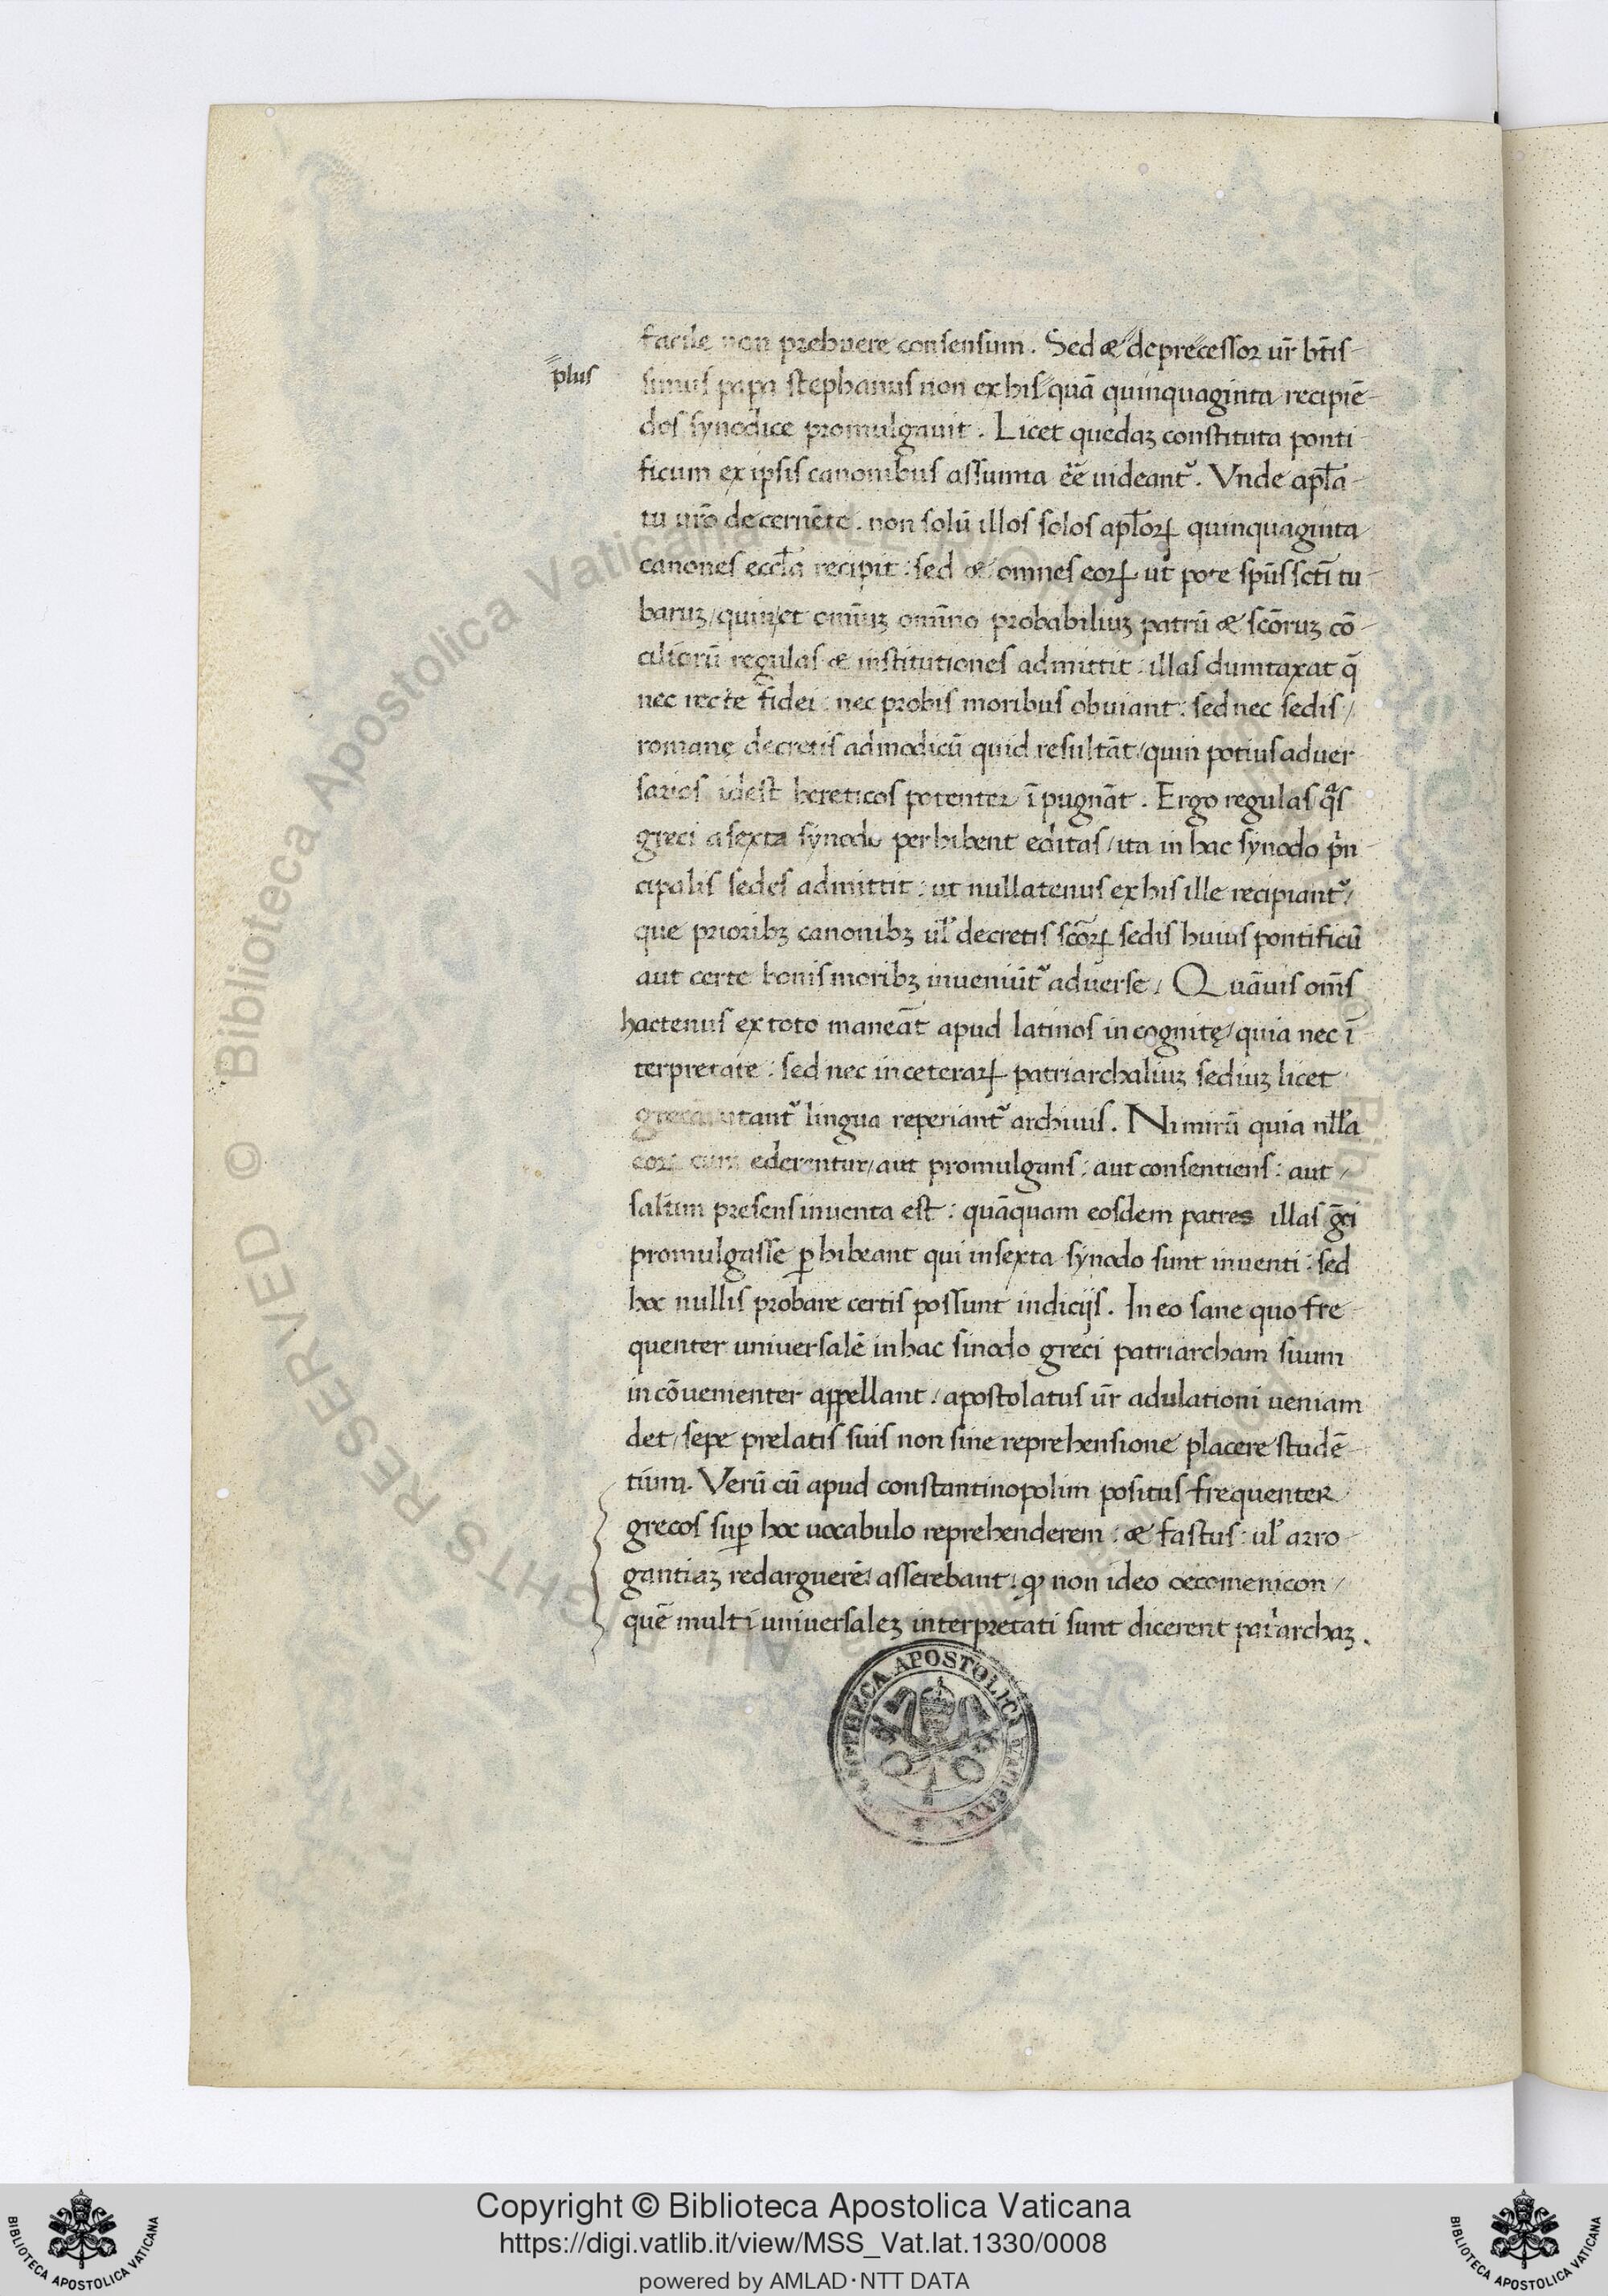 facile non prebuere consensum. Sed & deprecessor ur̄ bt̄is-
plus
simus papa stephanus non ex his quā quinquaginta recipiē-
dos synodice promulgauit. Licet quedaʒ constituta ponti
ficum ex ipsis canonibus assumta eē̄ uideant᷑. Vnde apl̄a-
tu ur̄o decernēte. non solū illos solos apl̄oꝝ quinquaginta
canones eccl̄a recipit: sed & omnes eoꝝ ut pote sp̄us sc̄ti tu-
baruʒ/quin/et om̄iuʒ om̄ino probabiliuʒ patrū & sc̄oruʒ cō-
ciliorū regulas & institutiones admittit: illas dumtaxat q̄
nec recte fidei: nec probis moribus obuiant: sed nec sedis/
romanę decretis admodicū quid resultāt/quin potius aduer
sarios idest hereticos potenter īpugnāt. Ergo regulas qͣs
greci a sexta synodo perhibent editas/ita in hac synodo pͥn
cipalis sedes admittit: ut nullatenus ex his ille recipiant᷑/
que prioribʒ canonibʒ ul̓ decretis sc̄oꝝ sedis huius pontificū
aut certe bonis moribʒ inueniūt᷑ aduerse/ Quāuis om̄s
hactenus ex toto maneāt apud latinos incognitę/quia nec ī
terpretate: sed nec in ceteraꝝ patriarchaliuʒ sediuʒ licet
greca utant᷑ lingua reperiant᷑ archiuis. Nimirū quia nl̄l̄a
eoꝝ cum ederentur/aut promulgans: aut consentiens: aut/
saltim presens inuenta est: quāquam eosdem patres illas ḡci
promulgasse ꝑhibeant qui in sexta synodo sunt inuenti: sed
hoc nullis probare certis possunt indicijs. In eo sane quo fre-
quenter uniuersalē in hac sinodo greci patriarcham suum
incōuenienter appellant/apostolatus ur̄ adulationi ueniam
det/sepe prelatis suis non sine reprehensione placere studē-
tium. Verū cū apud constantinopolim positus frequenter
grecos suꝑ hoc uocabulo reprehenderem: & fastus: ul̓ arro-
gantiaʒ redarguerē: asserebant: ꝙ non ideo oecomenicon/
quē multi uniuersaleʒ interpretati sunt dicerent patͥarchaʒ.
BIBLIOTHECA APOSTOLICA VATICANA
© Biblioteca Apostolica Vaticana ALL RIGHTS RESERVED
Copyright © Biblioteca Apostolica Vaticana
https://digi.vatlib.it/view/MSS_Vat.lat.1330/0008
powered by AMLAD·NTT DATA
BIBLIOTECA APOSTOLICA VATICANA
BIBLIOTECA APOSTOLICA VATICANA